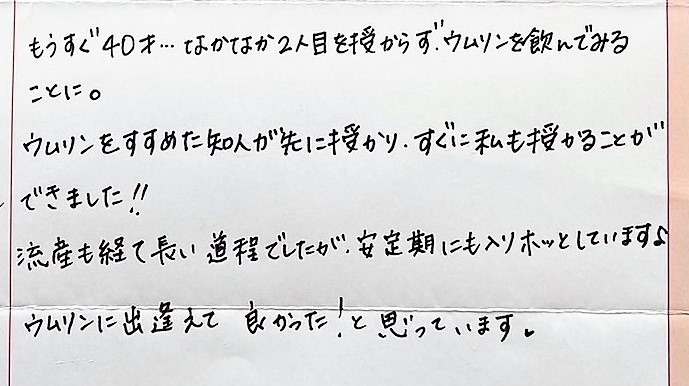 もうすぐ40才…なかなか2人目を授からず、ウムリンを飲んでみる
ことに。
ウムリンをすすめた知人が先に授かり、すぐに私も授かることが
できました!!
流産も経て長い道程でしたが、安定期にも入りホッとしています♪
ウムリンに出逢えて 良かった!と思っています。